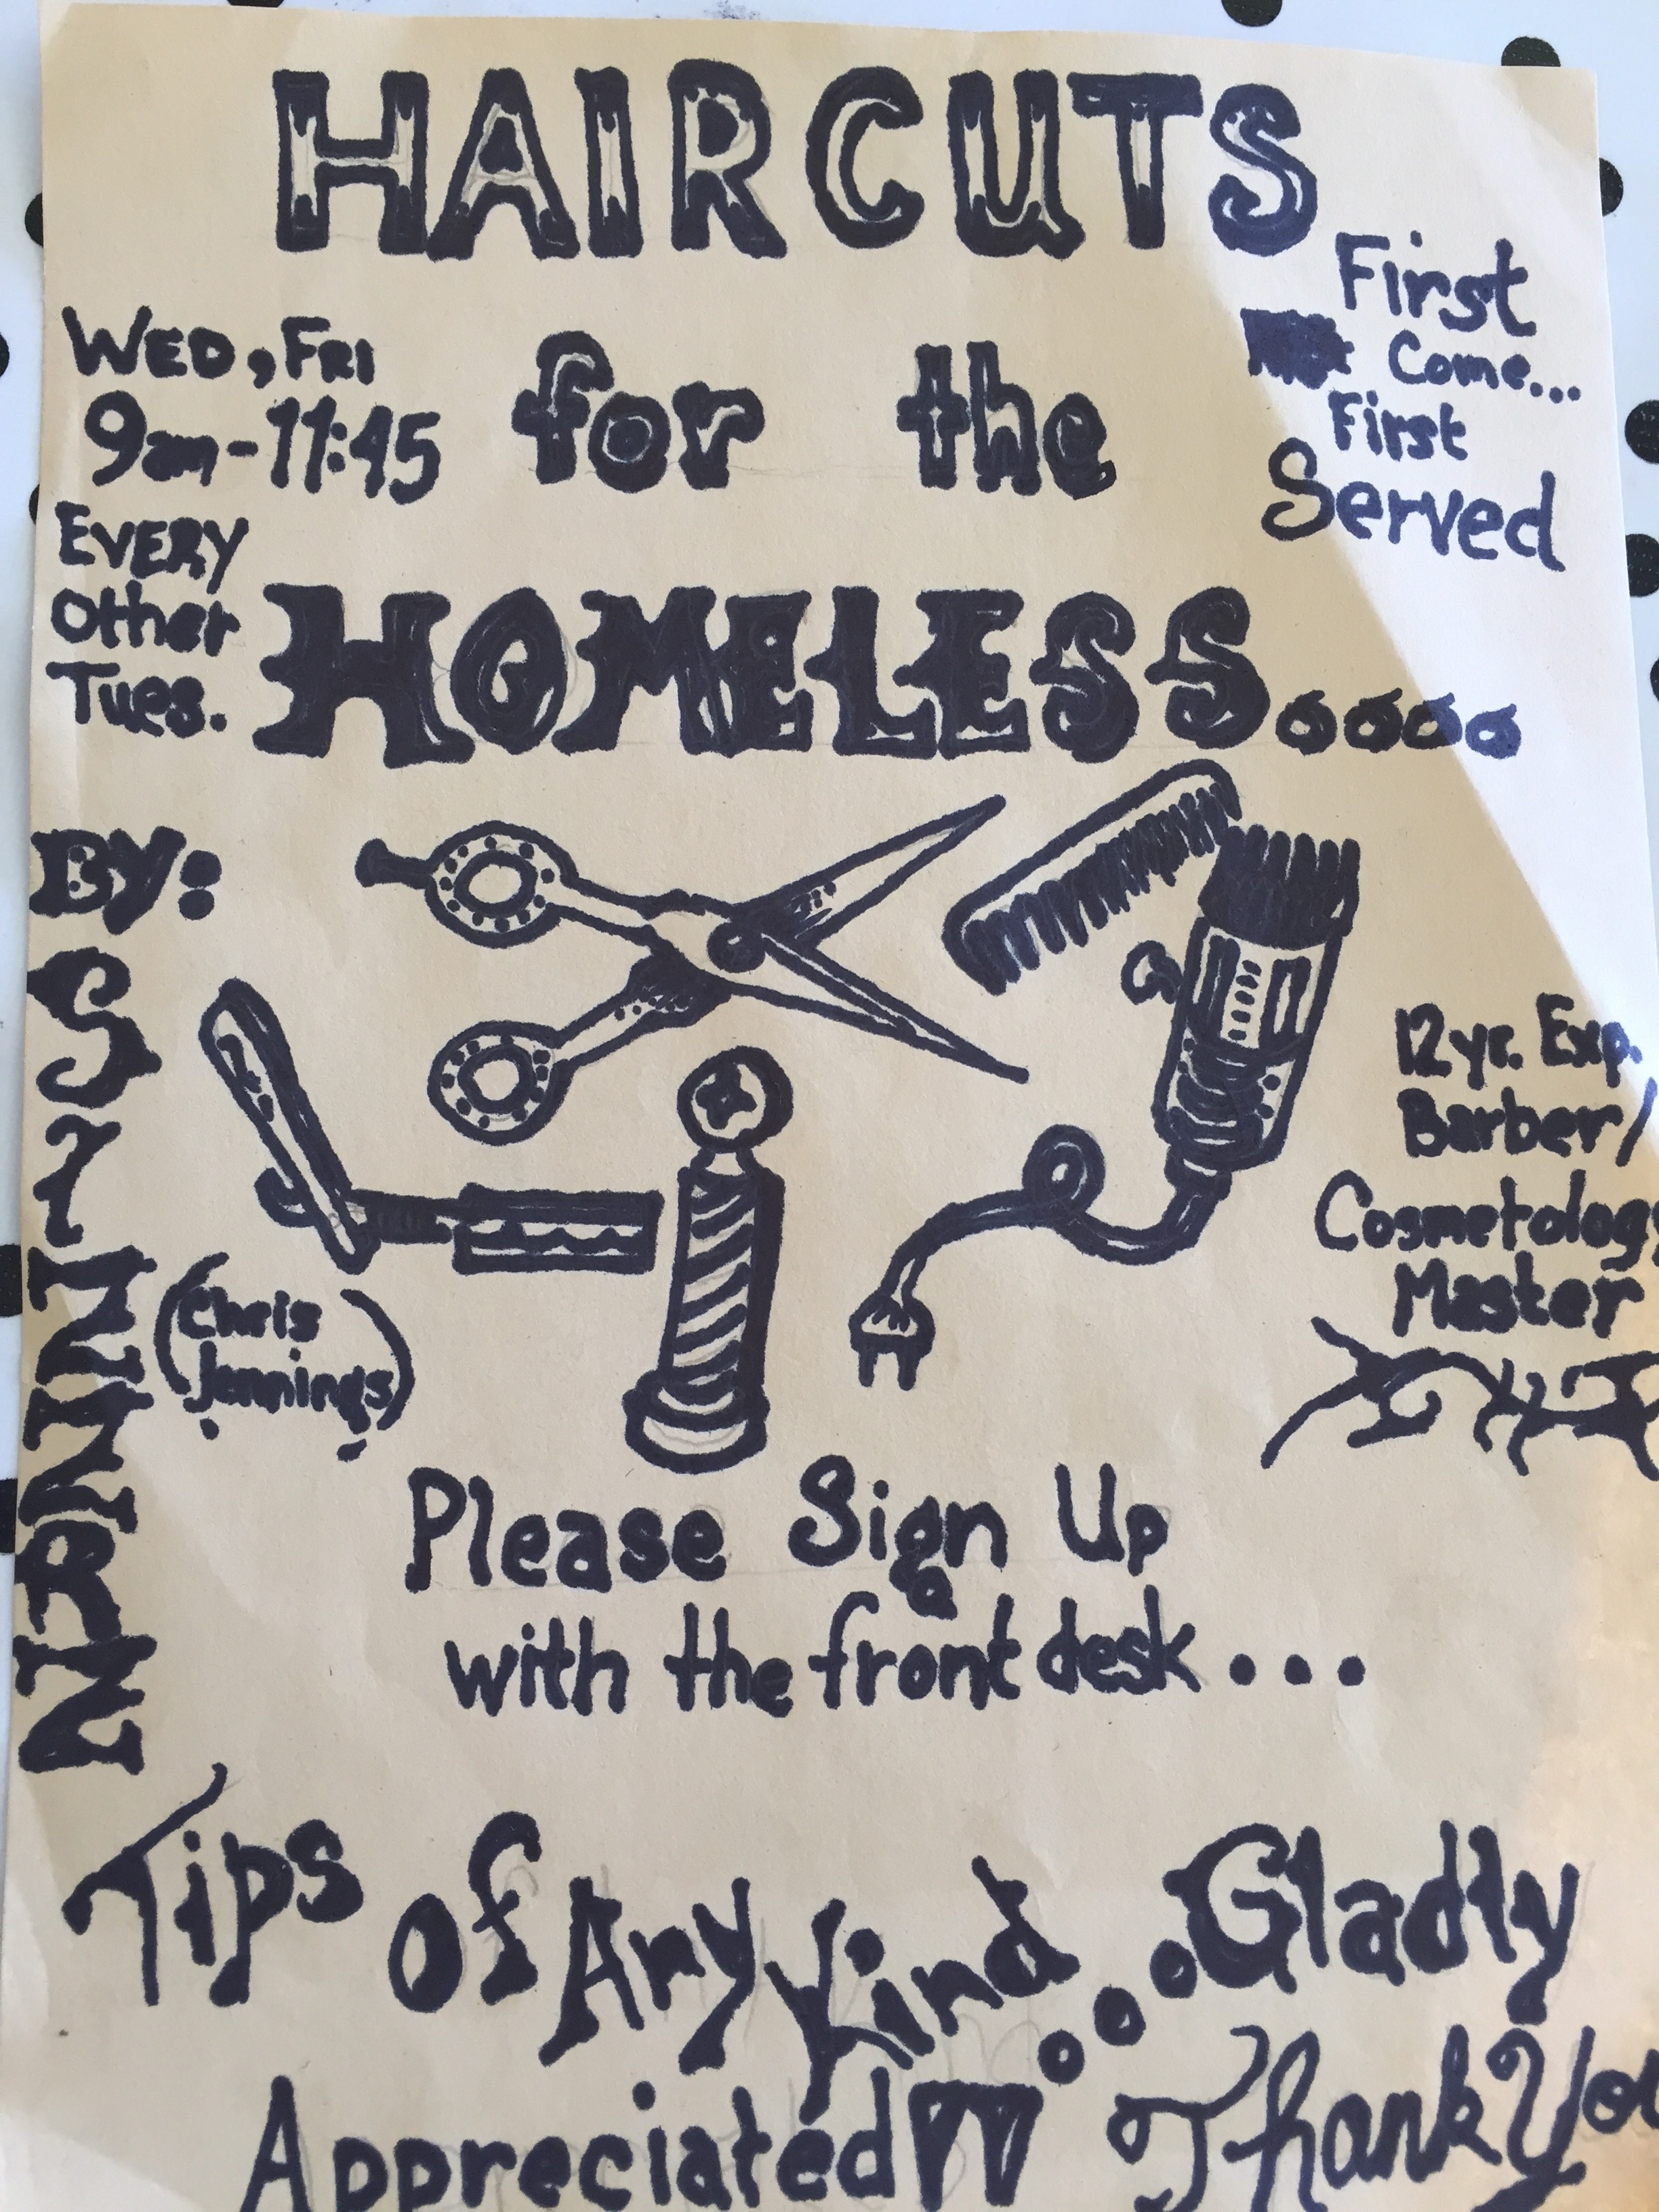 HAIRCUTS
First
Come...
First
Served
WED, FRI
9am-11:45
EVERY
Other
Tues.
for the
HOMELESS....
BY:
(Chris
Jennings)
12yr. Exp.
Barber/
Cosmetology
Master
Please Sign Up
with the front desk...
Tips of Any Kind...Gladly
Appreciated!! Thank You